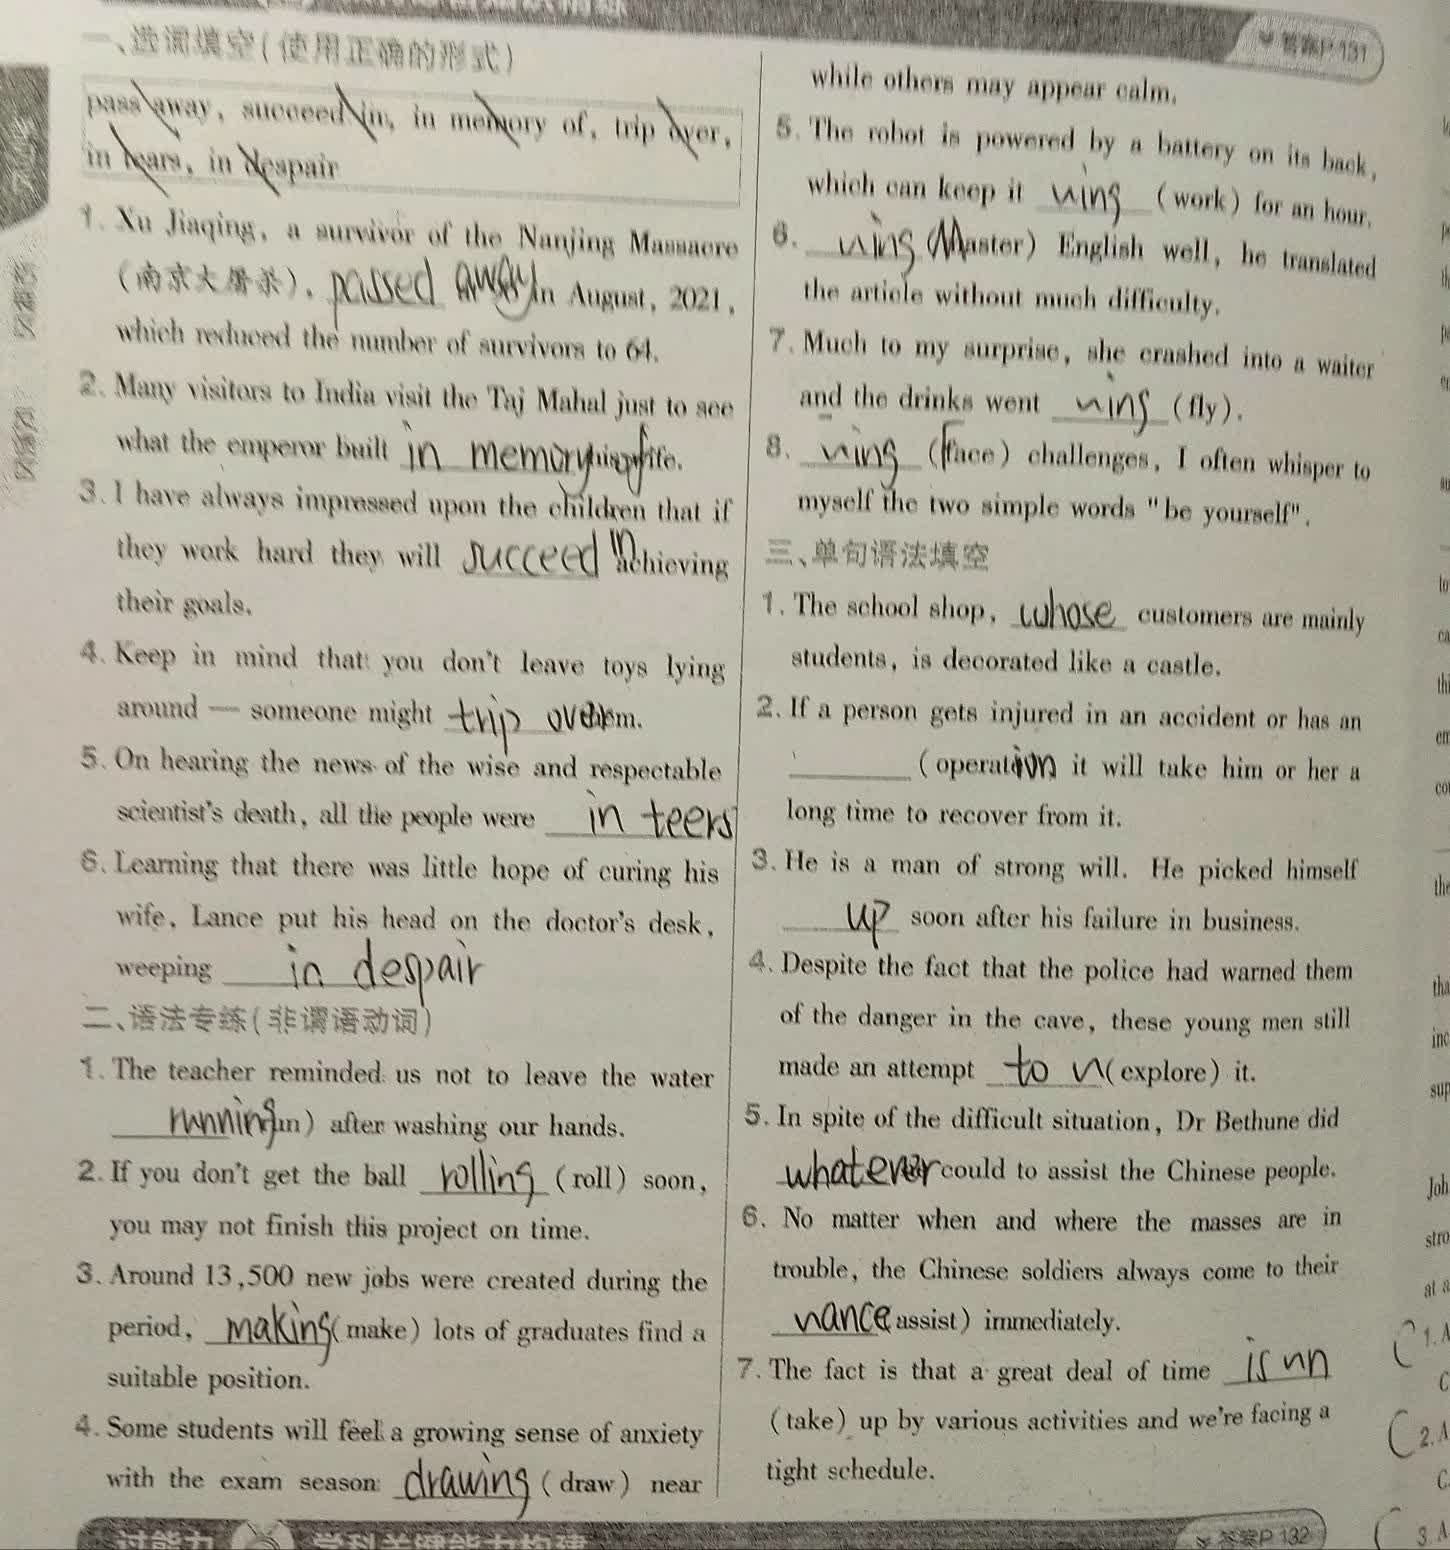 答案P 131
一、选词填空(使用正确的形式)
pass away, succeed in, in memory of, trip over,
in tears, in despair
1. Xu Jiaqing, a survivor of the Nanjing Massacre
(南京大屠杀), passed away in August, 2021,
which reduced the number of survivors to 64.
2. Many visitors to India visit the Taj Mahal just to see
what the emperor built in memory of his wife.
3. I have always impressed upon the children that if
they work hard they will succeed in achieving
their goals.
4. Keep in mind that you don't leave toys lying
around — someone might trip over them.
5. On hearing the news of the wise and respectable
scientist's death, all the people were in teers
6. Learning that there was little hope of curing his
wife, Lance put his head on the doctor's desk,
weeping in despair
二、语法专练(非谓语动词)
1. The teacher reminded us not to leave the water
running (run) after washing our hands.
2. If you don't get the ball rolling (roll) soon,
you may not finish this project on time.
3. Around 13,500 new jobs were created during the
period, making (make) lots of graduates find a
suitable position.
4. Some students will feel a growing sense of anxiety
with the exam season drawing (draw) near
while others may appear calm.
5. The robot is powered by a battery on its back,
which can keep it ing (work) for an hour.
6. ing (Master) English well, he translated
the article without much difficulty.
7. Much to my surprise, she crashed into a waiter
and the drinks went ing (fly).
8. ing (face) challenges, I often whisper to
myself the two simple words "be yourself".
三、单句语法填空
1. The school shop, whose customers are mainly
students, is decorated like a castle.
2. If a person gets injured in an accident or has an
(operation it will take him or her a
long time to recover from it.
3. He is a man of strong will. He picked himself
up soon after his failure in business.
4. Despite the fact that the police had warned them
of the danger in the cave, these young men still
made an attempt to (explore) it.
5. In spite of the difficult situation, Dr Bethune did
whatever could to assist the Chinese people.
6. No matter when and where the masses are in
trouble, the Chinese soldiers always come to their
ance (assist) immediately.
7. The fact is that a great deal of time is
(take) up by various activities and we're facing a
tight schedule.
答案P 132